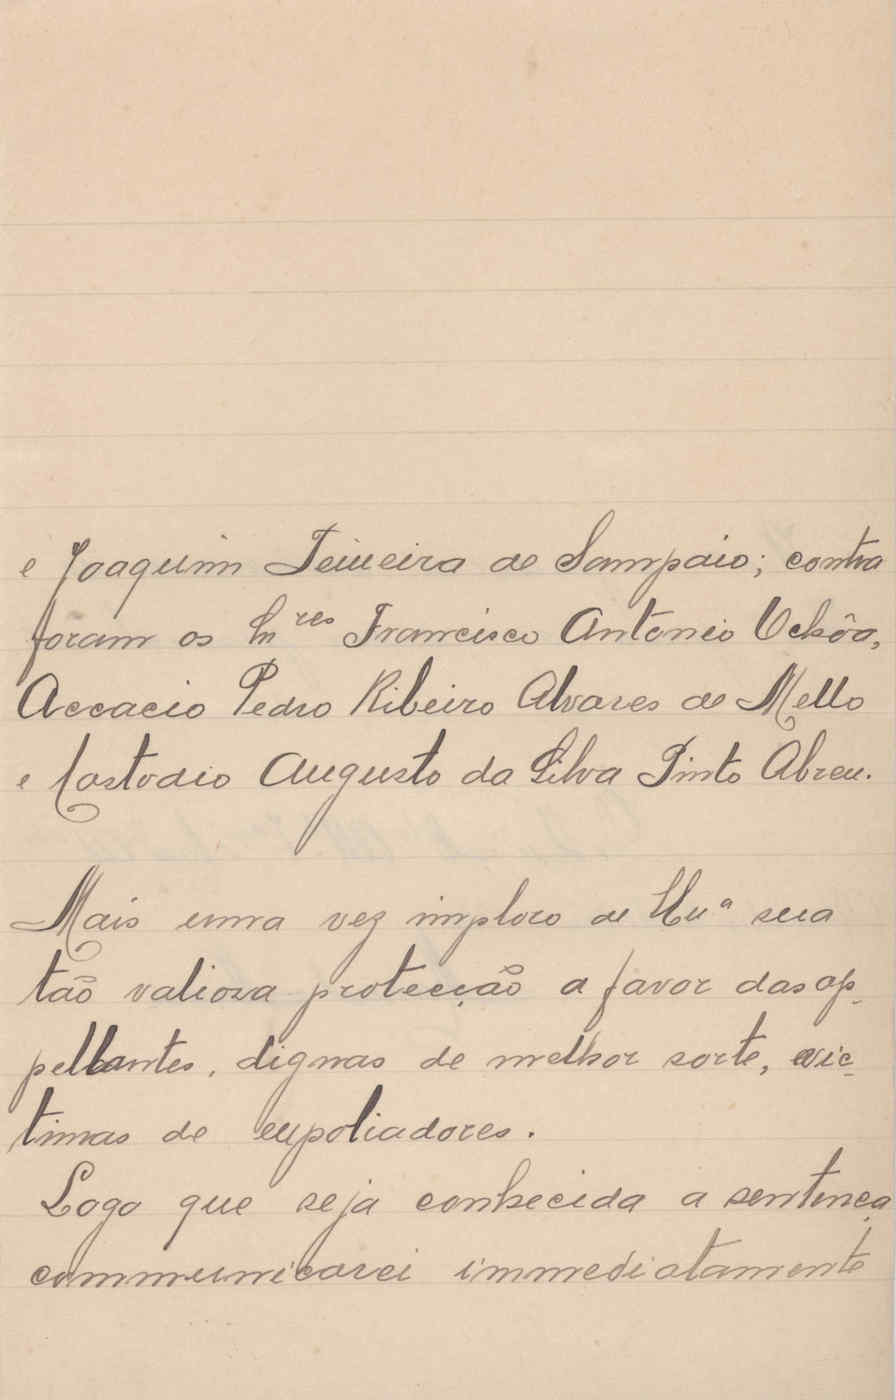 e Joaquim Teixeira de Sampaio; contra
foram os Snres Francisco Antonio Ochôa,
Accacio Pedro Ribeiro Alvares de Mello
e Costodio Augusto da Silva Pinto Abreu.
Mais uma vez imploro de sua
tão valiosa protecção a favor das ap-
pellantes, dignas de melhor sorte, e vic-
timas de expoliadores.
Logo que seja conhecida a sentença
communicarei immediatamente